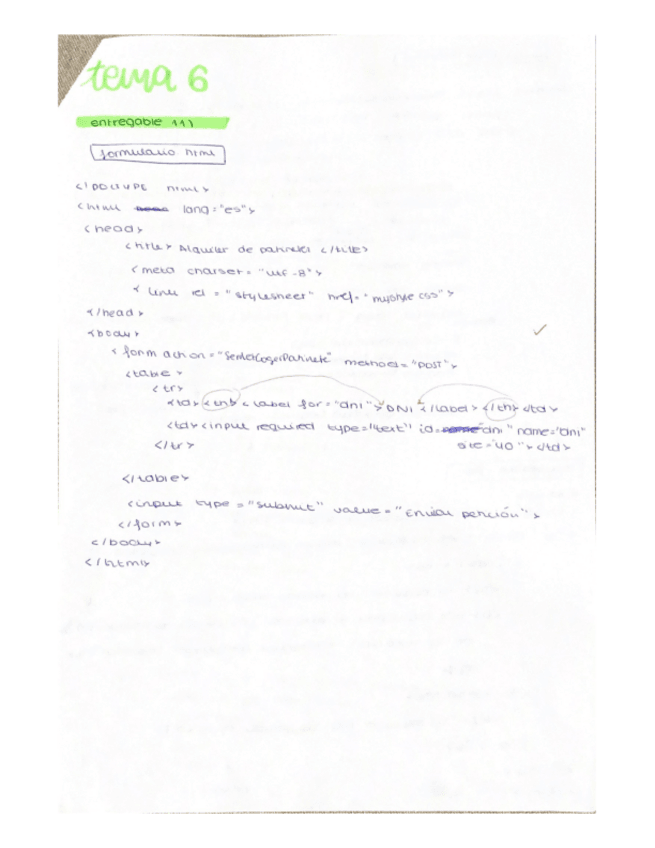 tema 6
entregable 11)
formulario html
<!DOCTYPE html>
<html lang="es">
<head>
<title> Alquiler de patinetes </title>
<meta charset="utf-8">
< link rel = "stylesheet" href="mystyle.css">
</head>
<body>
< form action="ServletCogerPatinete" method="POST">
<table>
<tr>
<td><th> < label for="dni"> DNI </label> </th> </td>
<td><input required type="text" id="dni" name="dni"
size="40"></td>
</tr>
</table>
<input type="submit" value="Enviar petición">
</form>
</body>
</html>